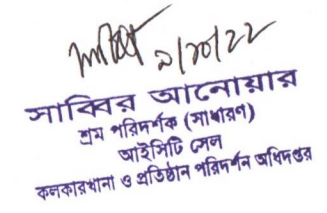 ৯/১০/২২
সাব্বির আনোয়ার
শ্রম পরিদর্শক (সাধারণ)
আইসিটি সেল
কলকারখানা ও প্রতিষ্ঠান পরিদর্শন অধিদপ্তর